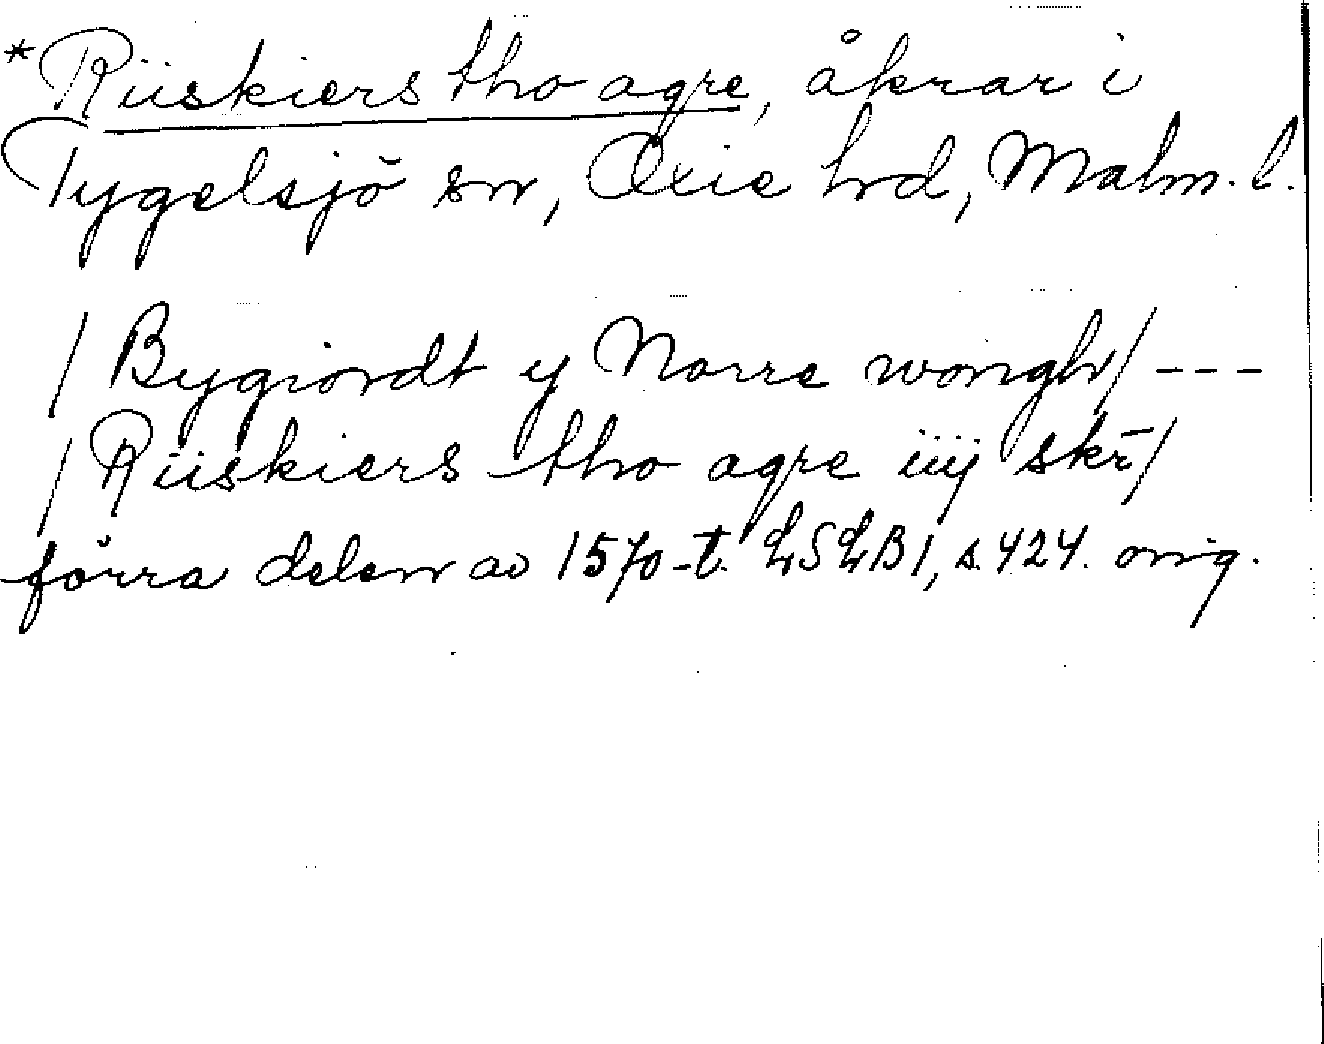 *Riiskiers tho agre, åkrar i
Tygelsjö sn, Oxie hd, Malm. l.
/ Bygiordt y Norre wongh / ---
/ Riiskiers tho agre iiij skr̄ /
förra delen av 1570-t. LSLB 1, s. 424. orig.